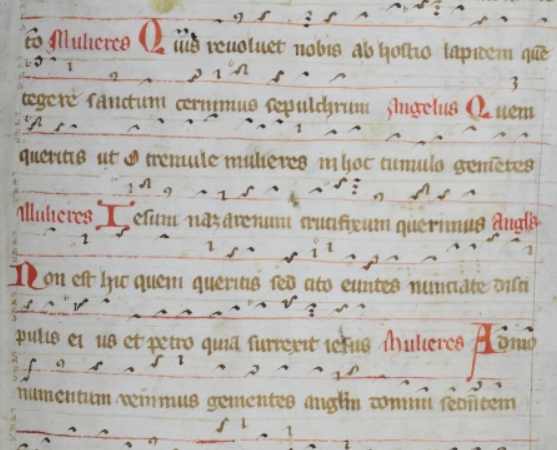 to Mulieres Quis reuoluet nobis ab hostio lapidem quē
tegere sanctum cernimus sepulchrum Angelus Quem
queritis ut o tremule mulieres in hoc tumulo gemētes
Mulieres Iesum nazarenum crucifixum querimus Angls
Non est hic quem queritis sed cito euntes nunciate disci
pulis ei us et petro quia surrexit iesus Mulieres Ad mo
numentum venimus gementes anglm domini sedētem